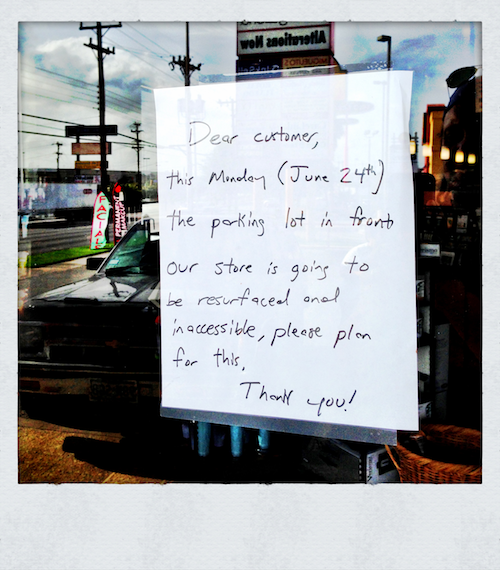 Alterations Now
Dear customer,
this Monday (June 24th)
the parking lot in front
our store is going to
be resurfaced and
inaccessible, please plan
for this.
Thank you!
FACIAL
PERMANENT
MAKEUP